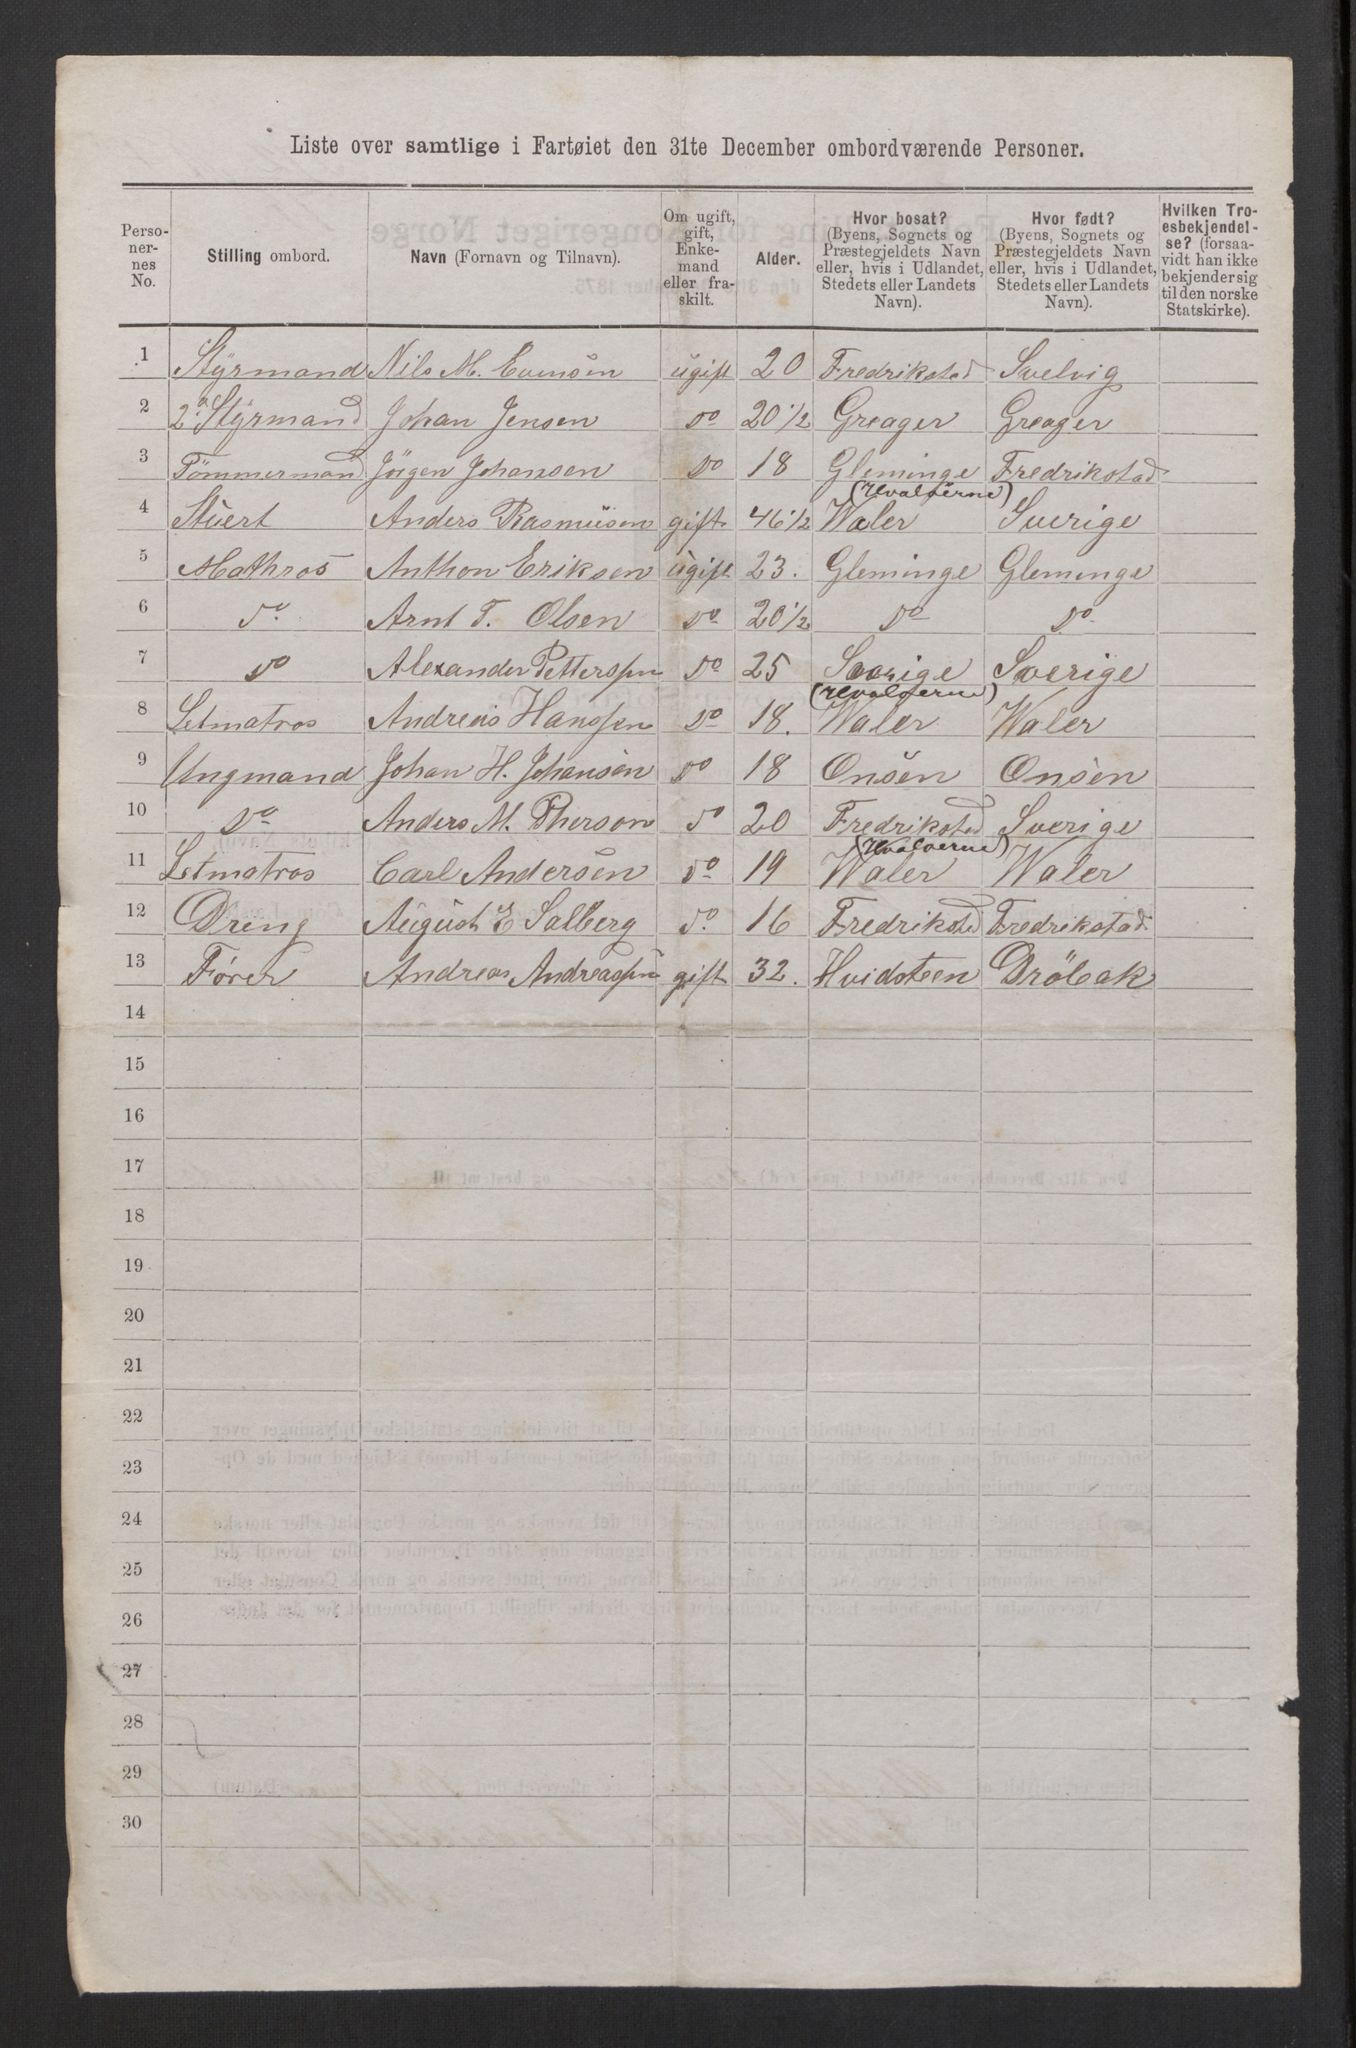 Liste over samtlige i Fartøiet den 31te December ombordværende Personer.
Personernes No. | Stilling ombord. | Navn (Fornavn og Tilnavn). | Om ugift, gift, Enkemand eller fraskilt. | Alder. | Hvor bosat? (Byens, Sognets og Præstegjeldets Navn eller, hvis i Udlandet, Stedets eller Landets Navn). | Hvor født? (Byens, Sognets og Præstegjeldets Navn eller, hvis i Udlandet, Stedets eller Landets Navn). | Hvilken Troesbekjendelse? (forsaavidt han ikke bekjender sig til den norske Statskirke).
1 Styrmand Nils M. Evensen ugift 20 Fredrikstad Svelvig
2 2. Styrmand Johan Jensen do 20 1/2 Greager Greager
3 Tömmermand Jörgen Johansen do 18 Gleminge Fredrikstad
(Hvaløerne)
4 Stuert Anders Rasmusen gift 46 1/2 Waler Sverige
5 Mathros Anthon Eriksen ugift 23. Gleminge Gleminge
6 do Arnt T. Olsen do 20 1/2 do do
7 do Alexander Petterssen do 25 Sverige Sverige
(Hvaløerne)
8 Letmatros Andreas Hanssen do 18. Waler Waler
9 Ungmand Johan H. Johansen do 18 Onsøen Onsøen
10 do Anders M. Pherson do 20 Fredriksted Sverige
(Hvaløerne)
11 Letmatros Carl Andersen do 19 Waler Waler
12 Dreng August E Salberg do. 16 Fredriksted Fredrikstad
13 Fører Andreas Andreassen gift 32. Hvidsteen Dröbak
14
15
16
17
18
19
20
21
22
23
24
25
26
27
28
29
30